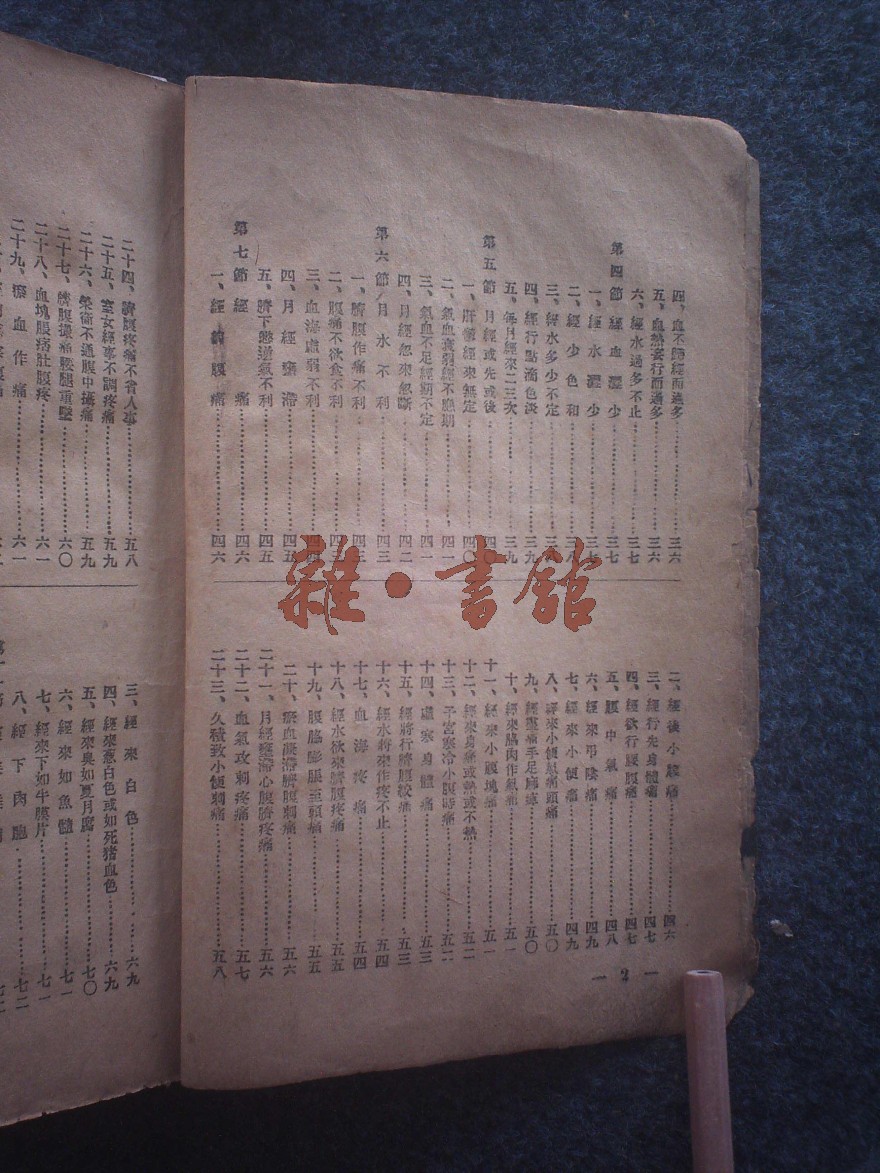 四、血不歸經而過多⋯⋯三六
五、血熱妄行而過多⋯⋯三六
六、經水過多不止⋯⋯三七
第四節 經血澀少⋯⋯三七
一、經水澀少⋯⋯三七
二、經少色和⋯⋯三八
三、經水多少不定⋯⋯三八
四、經行點滴色淡⋯⋯三九
五、每月經來二三次⋯⋯三九
第五節 月經或先或後⋯⋯四〇
一、肝鬱經來無定⋯⋯四〇
二、氣血衰弱經不應期⋯⋯四一
三、氣血不足經期不定⋯⋯四一
四、月經忽來忽斷⋯⋯四二
第六節 月水不利⋯⋯四三
一、臍腹作痛不利⋯⋯四三
二、腹痛不欲食不利⋯⋯
三、血海虛弱不利⋯⋯
四、月經壅滯⋯⋯四五
五、臍下憋逆氣不利⋯⋯四五
第七節 經痛⋯⋯四六
一、經前腹痛⋯⋯四六
二、經後小腹痛⋯⋯四六
三、經行先身體痛⋯⋯四七
四、經欲行腰腹痛⋯⋯四七
五、腹中氣痛⋯⋯四八
六、經來弔陰痛⋯⋯四九
七、經來小便痛⋯⋯四九
八、經來小便氣痛頭痛⋯⋯五〇
九、經壅痛手足麻痺⋯⋯五〇
十、經來脇肉作氣痛⋯⋯五一
十一、經來小腹塊痛⋯⋯五一
十二、經來身痛或熱或不熱⋯⋯五二
十三、子宮寒冷小腹時痛⋯⋯五二
十四、虛寒身體痛⋯⋯五三
十五、經將行臍腹絞痛⋯⋯五三
十六、經水將來作疼不止⋯⋯五四
十七、血海疼痛⋯⋯五四
十八、經水欲來臍腹疼痛⋯⋯五五
十九、腹脇膨脹至頭痛⋯⋯五五
二十、瘀血凝滯臍腹刺痛⋯⋯五六
二十一、月經壅滯心腹臍疼痛⋯⋯五六
二十二、血氣攻刺疼痛⋯⋯五七
二十三、久積致小便刺痛⋯⋯五八
— 2 —
二十四、臍腹疼痛不省人事⋯⋯五八
二十五、室女經事不調疼痛⋯⋯五九
二十六、榮衞不通腹中㽲痛⋯⋯五九
二十七、臍腹撮痛腰腿重墜⋯⋯六〇
二十八、血塊脹痞肚腹疼⋯⋯六一
二十九、瘀血作痛⋯⋯六一
三、經來白色⋯⋯六九
四、經來葱白色或如死猪血色⋯⋯六九
五、經來臭如夏月腐⋯⋯七〇
六、經來如魚髓⋯⋯七一
七、經來下如牛膜片⋯⋯七一
八、經下肉胞⋯⋯七二
雜·書館